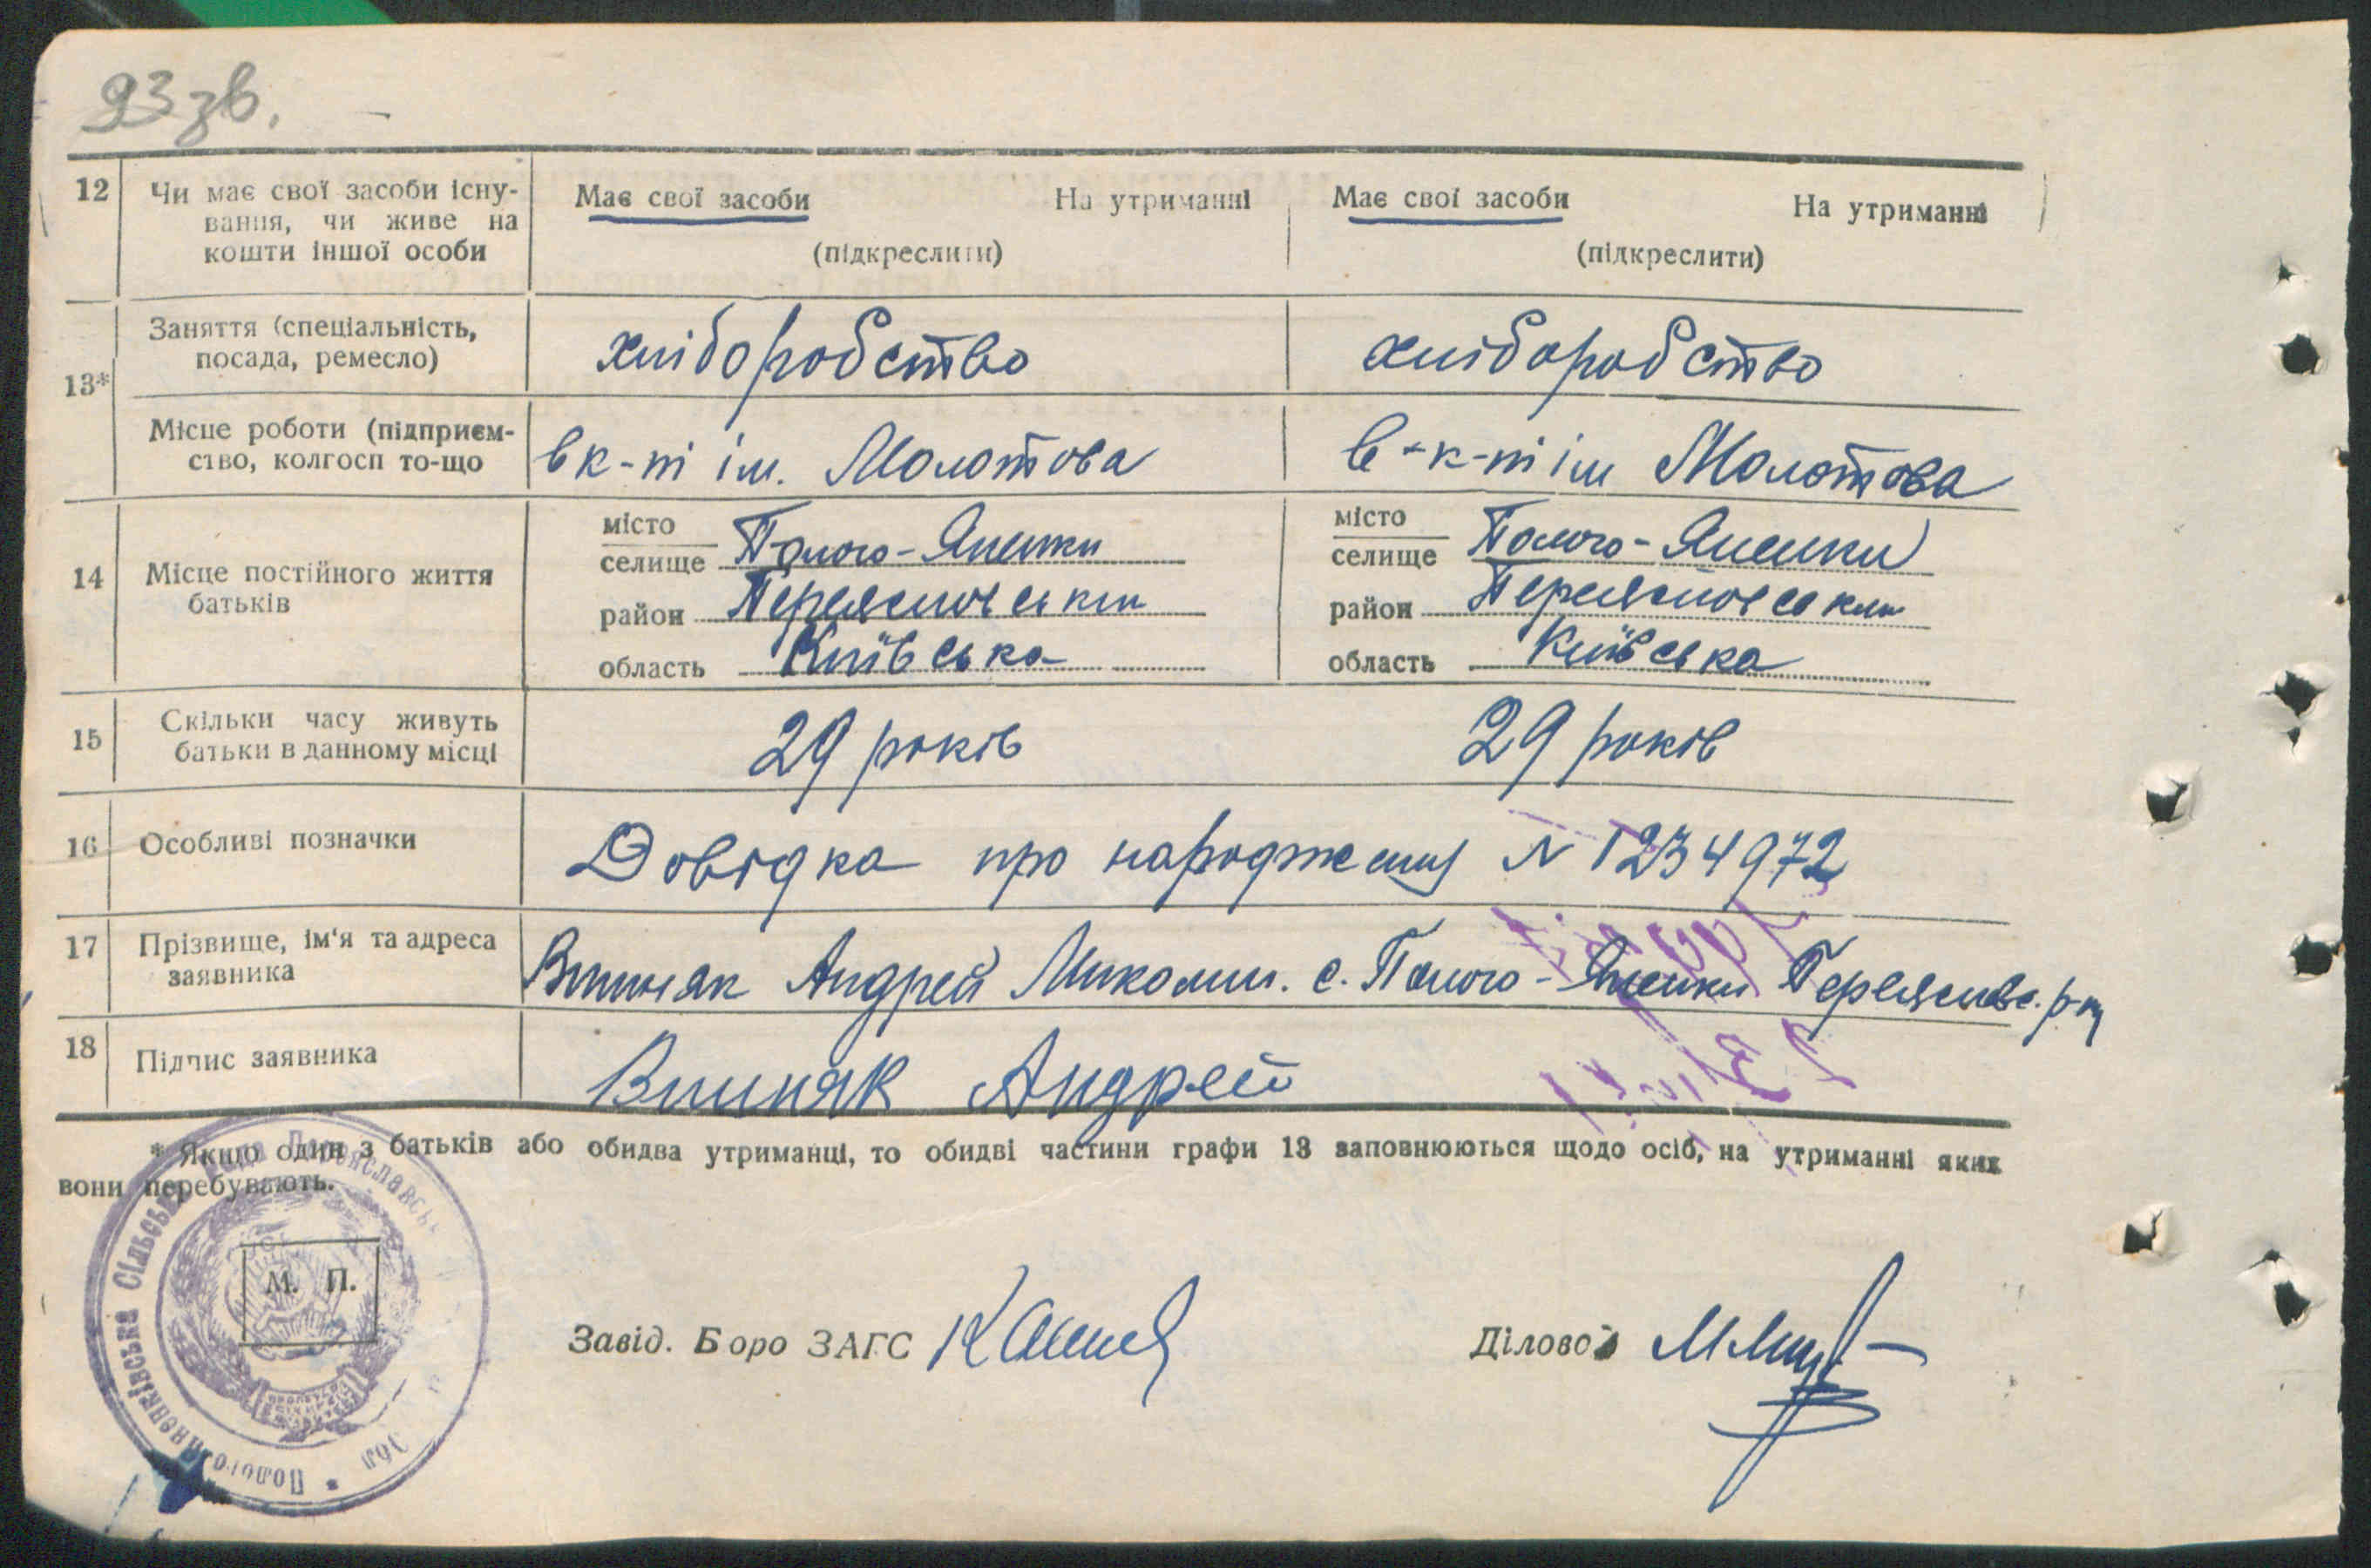 93 зв.
12 Чи має свої засоби існу- Має свої засоби На утриманні Має свої засоби На утриманні
вання, чи живе на
кошти іншої особи (підкреслити) (підкреслити)
Заняття (спеціальність, хліборобство хліборобство
посада, ремесло)
13*
Місце роботи (підприєм- в к-пі ім. Молотова в-к-пі ім Молотова
ство, колгосп то-що
місто місто
селище Полого-Яненки селище Полого-Яненки
14 Місце постійного життя
батьків
район Переяславський район Переяславський
область Київська область Київська
15 Скільки часу живуть 29 років 29 років
батьки в данному місці
16 Особливі позначки Довідка про народження N 1234972
17 Прізвище, ім'я та адреса Андрей Микола. с. Полого-Яненки Переяславс. р-ну
заявника
18 Підпис заявника Андрей
* Якщо один з батьків або обидва утриманці, то обидві частини графи 13 заповнюються щодо осіб, на утриманні яких
вони перебувають.
Полого-Яненківська Сільська Рада Переяславськ
М. П.
Завід. Боро ЗАГС Діловод